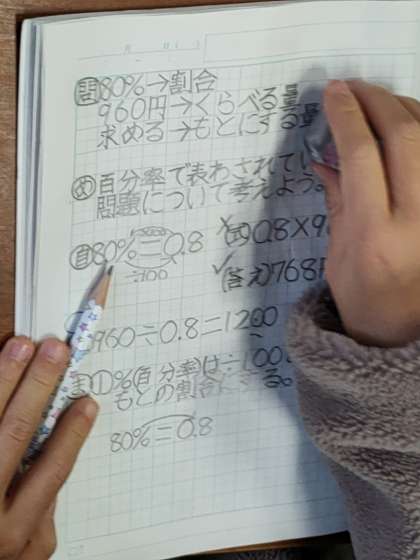 問 80%→割合
960円→くらべる量
求める→もとにする量
め 百分率で表わされてい
問題について考えよう。
自 80%=0.8
÷100
(式)0.8×9
(答え)768
960÷0.8=1200
ま ①%(百分率)は÷100
もとの割合に
る。
80%=0.8